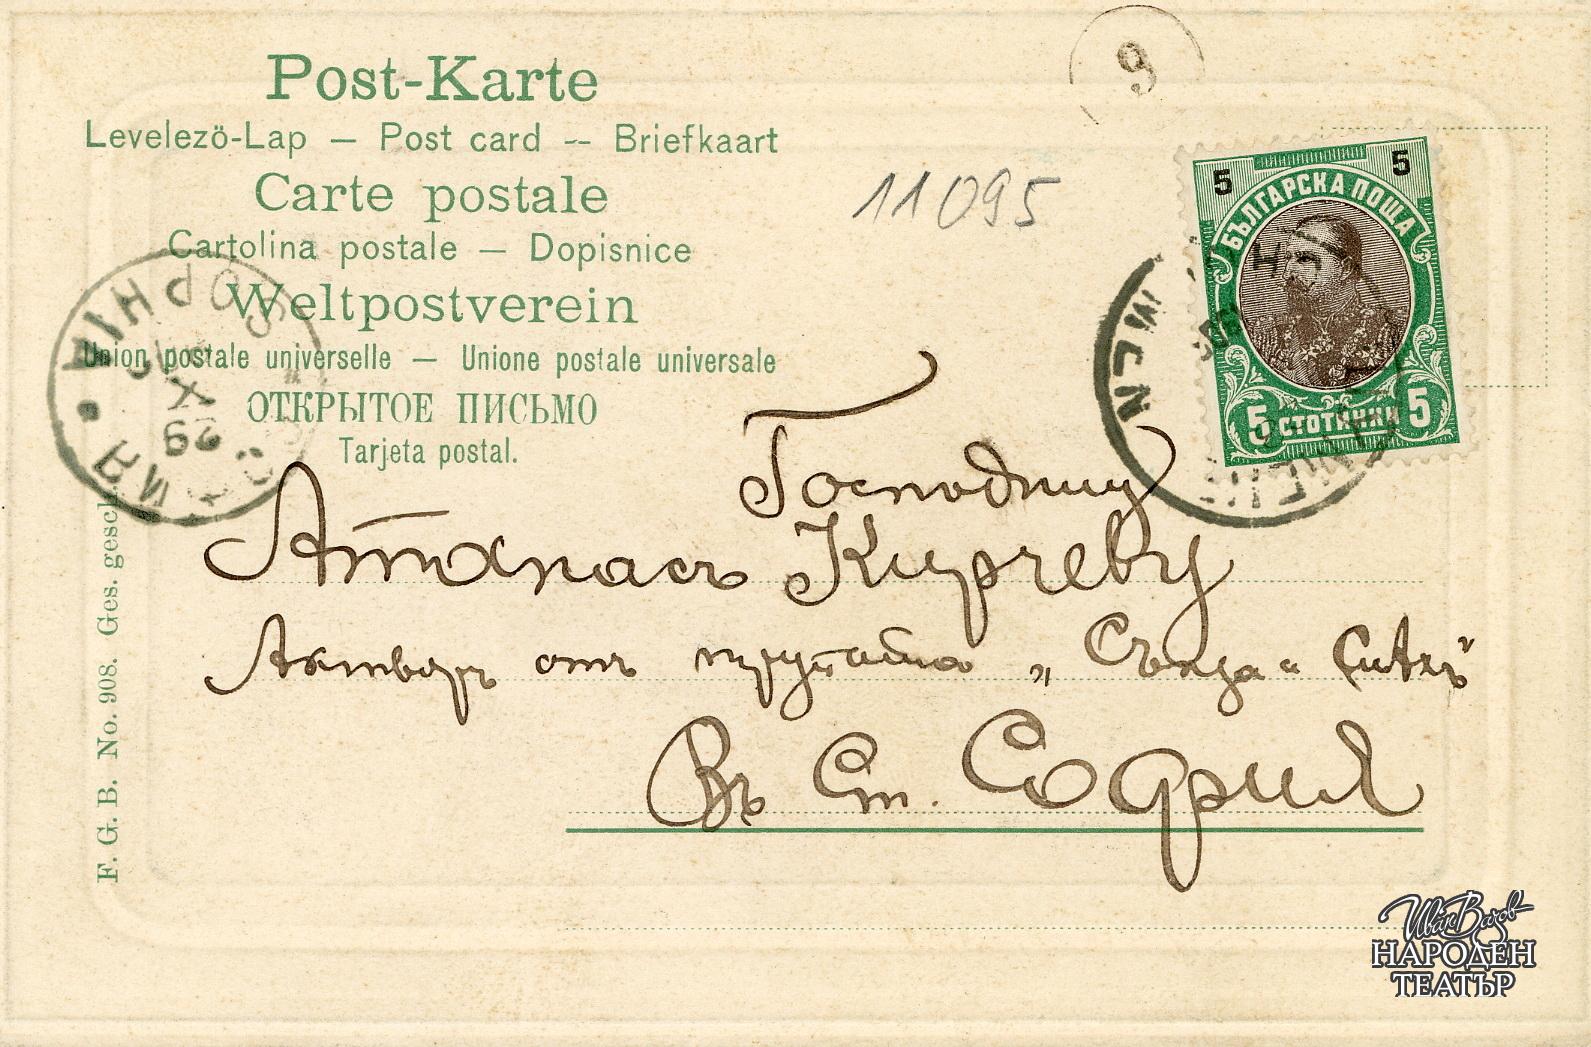 Post-Karte
Levelezö-Lap — Post card -- Briefkaart
Carte postale
Cartolina postale — Dopisnice
Weltpostverein
Union postale universelle — Unione postale universale
ОТКРЫТОЕ ПИСЬМО
Tarjeta postal.
9
11095
5 5
БЪЛГАРСКА ПОЩА
5 СТОТИНКИ 5
СОФИЯ
SOPHIA
X
Господину
Атанасъ Кирчеву
Актьоръ отъ трупата „Сълза и Смѣхъ"
Въ Ст. София
F. G. B. No. 908. Ges. gesch.
Иван Вазов
НАРОДЕН
ТЕАТЪР